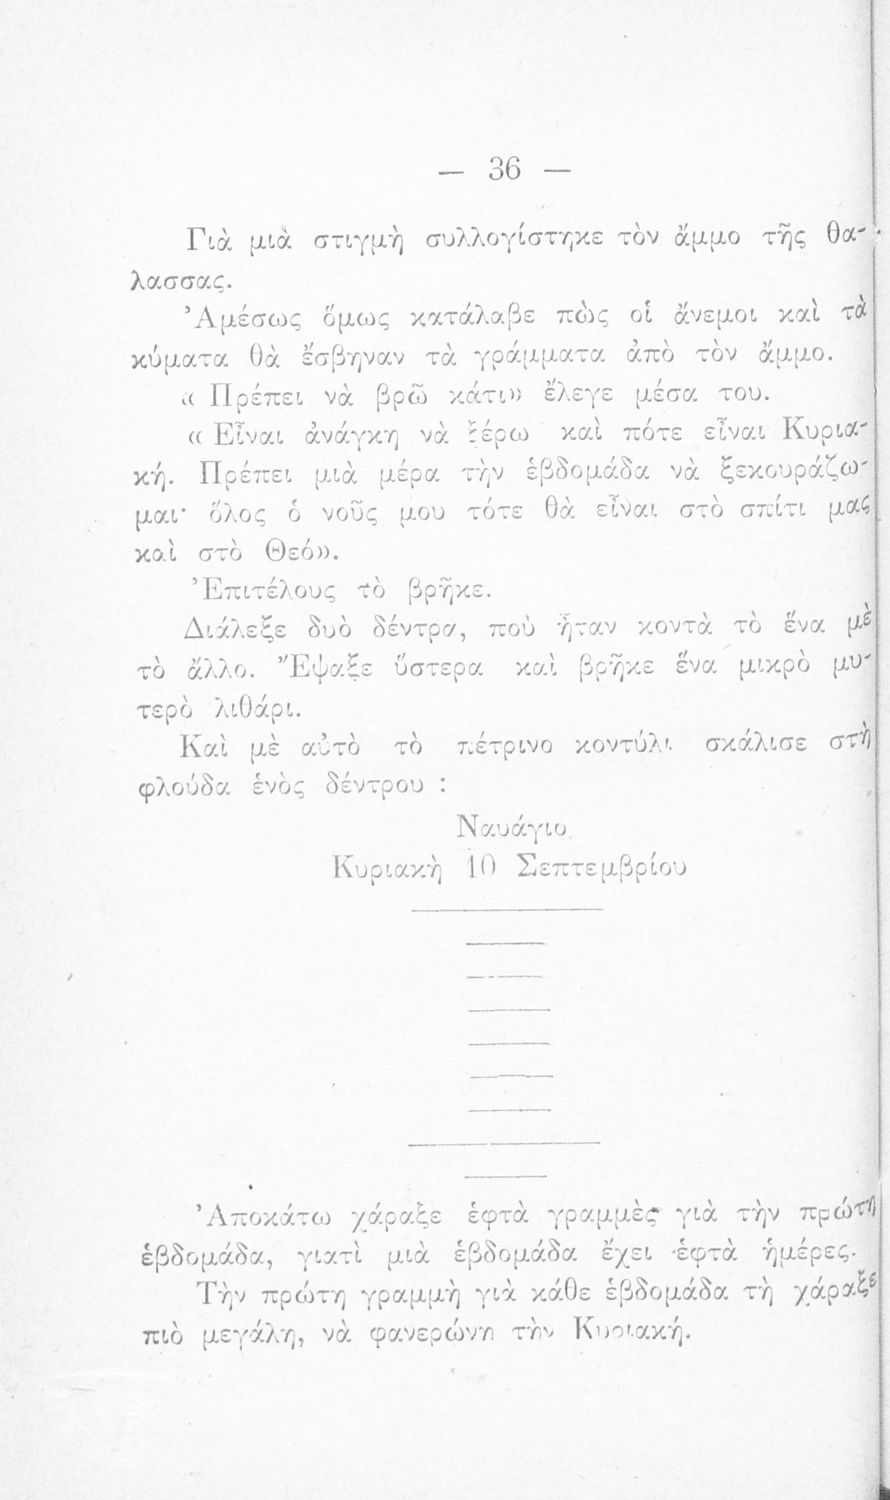 — 36 —
Γιὰ μιὰ στιγμὴ συλλογίστηκε τὸν ἄμμο τῆς θα-
λασσας.
Ἀμέσως ὅμως κατάλαβε πὼς οἱ ἄνεμοι καὶ τὰ
κύματα θὰ ἔσβηναν τὰ γράμματα ἀπὸ τὸν ἄμμο.
« Πρέπει νὰ βρῶ κάτι» ἔλεγε μέσα του.
« Εἶναι ἀνάγκη νὰ ξέρω καὶ πότε εἶναι Κυρια-
κή. Πρέπει μιὰ μέρα τὴν ἑβδομάδα νὰ ξεκουράζω-
μαι· ὅλος ὁ νοῦς μου τότε θὰ εἶναι στὸ σπίτι μας
καὶ στὸ Θεό».
Ἐπιτέλους τὸ βρῆκε.
Διάλεξε δυὸ δέντρα, ποὺ ἦταν κοντὰ τὸ ἕνα μὲ
τὸ ἄλλο. Ἔψαξε ὕστερα καὶ βρῆκε ἕνα μικρὸ μυ-
τερὸ λιθάρι.
Καὶ μὲ αὐτὸ τὸ πέτρινο κοντύλι σκάλισε στὴ
φλούδα ἑνὸς δέντρου :
Ναυάγιο
Κυριακὴ 10 Σεπτεμβρίου
Ἀποκάτω χάραξε ἑφτὰ γραμμὲς γιὰ τὴν πρώτη
ἑβδομάδα, γιατὶ μιὰ ἑβδομάδα ἔχει ἑφτὰ ἡμέρες.
Τὴν πρώτη γραμμὴ γιὰ κάθε ἑβδομάδα τὴ χάραξε
πιὸ μεγάλη, νὰ φανερώνη τὴν Κυριακή.